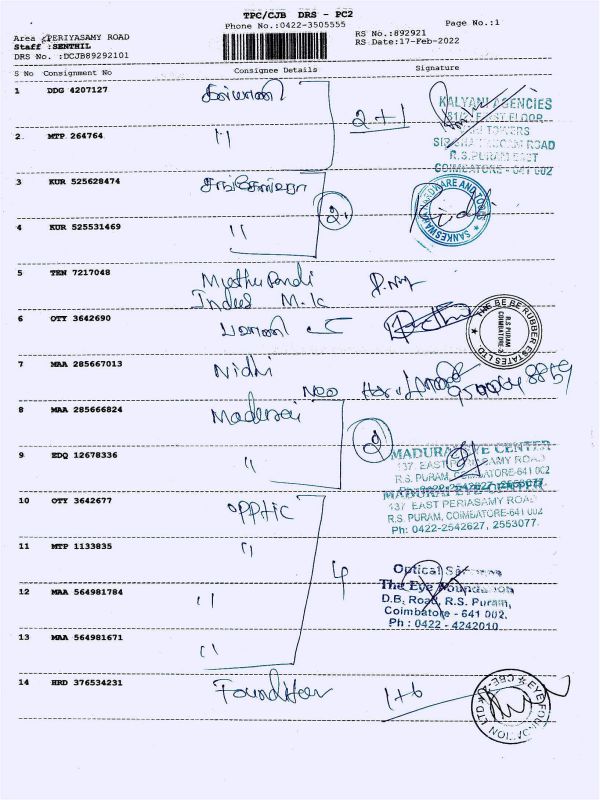 TPC/CJB DRS - PC2
Phone No.:0422-3505555
Page No.:1
Area :PERIYASAMY ROAD
Staff :SENTHIL
DRS No. :DCJB89292101
RS No.:892921
RS Date:17-Feb-2022
S No Consignment No Consignee Details Signature
1 DDG 4207127 கல்யாணி 2+1
KALYANI AGENCIES
FIRST FLOOR
TOWERS
ROAD
R.S.PURAM EAST
COIMBATORE - 641 002
2 MTP 264764 "
3 KUR 525628474
2
HARDWARE AND TOOLS
SANKESWARA
4 KUR 525531469 "
5 TEN 7217048
6 OTY 3642690 பவானி
THE BE BE RUBBER ESTATES LTD.
R.S PURAM
COIMBATORE-2
7 MAA 285667013 Nidhi
8 MAA 285666824 Madurai
2
9 EDQ 12678336 "
MADURAI EYE CENTER
137, EAST PERIASAMY ROAD
R.S. PURAM, COIMBATORE-641 002
Ph: 0422-2542627, 2553077.
MADURAI EYE CENTER
137 EAST PERIASAMY ROAD
R.S. PURAM, COIMBATORE-641 002
Ph: 0422-2542627, 2553077.
10 OTY 3642677 OPPtic
11 MTP 1133835 "
4
Optical
The Eye Foundation
D.B. Road, R.S. Puram,
Coimbatore - 641 002.
Ph : 0422 - 4242010
12 MAA 564981784 "
13 MAA 564981671 "
14 HRD 376534231 1+6
EYE FOUNDATION LTD CBE-2